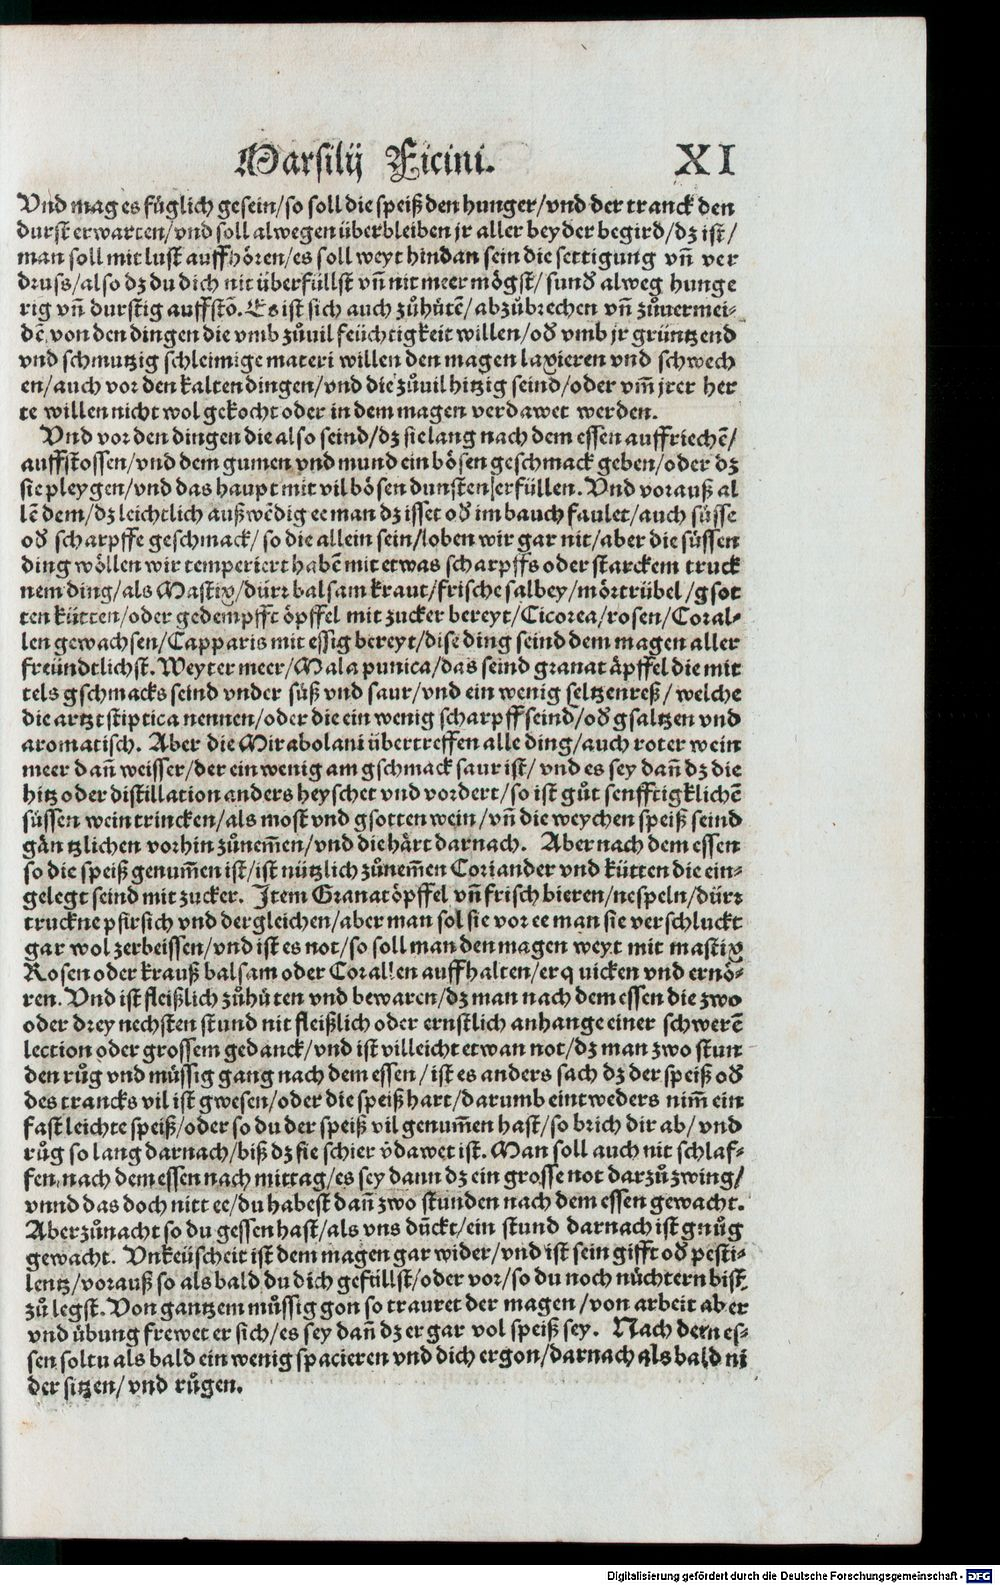 Marsilij Ficini. XI
Vnd mag es füglich gesein/so soll die speiß den hunger/vnd der tranck den
durst erwarten/vnd soll alwegen überbleiben jr aller beyder begird/dz ist/
man soll mit lust auffhören/es soll weyt hindan sein die settigung vñ ver
druss/also dz du dich nit überfüllst vñ nit meer mögst/sund alweg hunge
rig vñ durstig auffstõ. Es ist sich auch zůhütẽ/abzübrechen vñ zůuermei-
dẽ von den dingen die vmb zůuil feüchtigkeit willen/od vmb jr grüntzend
vnd schmutzig schleimige materi willen den magen laxieren vnd schwech
en/auch vor den kalten dingen/vnd die zůuil hitzig seind/oder vm̃ jrer her
te willen nicht wol gekocht oder in dem magen verdawet werden.
Vnd vor den dingen die also seind/dz sie lang nach dem essen auffriechẽ/
auffstossen/vnd dem gumen vnd mund ein bösen geschmack geben/oder dz
sie pleygen/vnd das haupt mit vil bösen dunsten erfüllen. Vnd vorauß al
lẽ dem/dz leichtlich außwẽdig ee man dz isset od im bauch faulet/auch süsse
od scharpffe geschmack/so die allein sein/loben wir gar nit/aber die süssen
ding wöllen wir temperiert habẽ mit etwas scharpffs oder starckem truck
nem ding/als Mastix/dürz balsam kraut/frische salbey/mörtrübel/gsot
ten kütten/oder gedempfft öpffel mit zucker bereyt/Cicorea/rosen/Coral-
len gewachsen/Capparis mit essig bereyt/dise ding seind dem magen aller
freündtlichst. Weyter meer/Mala punica/das seind granat äpffel die mit
tels gschmacks seind vnder süß vnd saur/vnd ein wenig seltzenreß/welche
die artzt stiptica nennen/oder die ein wenig scharpff seind/od gsaltzen vnd
aromatisch. Aber die Mirabolani übertreffen alle ding/auch roter wein
meer dañ weisser/der ein wenig am gschmack saur ist/vnd es sey dañ dz die
hitz oder distillation anders heyschet vnd vordert/so ist gůt senfftigklichẽ
süssen wein trincken/als most vnd gsotten wein/vñ die weychen speiß seind
gäntzlichen vorhin zůnem̃en/vnd die härt darnach. Aber nach dem essen
so die speiß genum̃en ist/ist nützlich zůnem̃en Coriander vnd kütten die ein-
gelegt seind mit zucker. Item Granatöpffel vñ frisch bieren/nespeln/dürz
truckne pfirsich vnd dergleichen/aber man sol sie vor ee man sie verschluckt
gar wol zerbeissen/vnd ist es not/so soll man den magen weyt mit mastix
Rosen oder krauß balsam oder Corallen auffhalten/erquicken vnd ernö-
ren. Vnd ist fleißlich zůhüten vnd bewaren/dz man nach dem essen die zwo
oder drey nechsten stund nit fleißlich oder ernstlich anhange einer schwerẽ
lection oder grossem gedanck/vnd ist villeicht etwan not/dz man zwo stun
den růg vnd müssig gang nach dem essen/ist es anders sach dz der speiß od
des trancks vil ist gwesen/oder die speiß hart/darumb eintweders nim̃ ein
fast leichte speiß/oder so du der speiß vil genum̃en hast/so brich dir ab/vnd
růg so lang darnach/biß dz sie schier v̈dawet ist. Man soll auch nit schlaf-
fen nach dem essen nach mittag/es sey dann dz ein grosse not darzů zwing/
vnnd das doch nitt ee/du habest dañ zwo stunden nach dem essen gewacht.
Aber zůnacht so du gessen hast/als vns dũckt/ein stund darnach ist gnůg
gewacht. Vnkeüscheit ist dem magen gar wider/vnd ist sein gifft od pesti-
lentz/vorauß so als bald du dich gefüllst/oder vor/so du noch nüchtern bist
zů legst. Von gantzem můssig gon so trauret der magen/von arbeit aber
vnd übung frewet er sich/es sey dañ dz er gar vol speiß sey. Nach dem es-
sen soltu als bald ein wenig spacieren vnd dich ergon/darnach als bald ni
der sitzen/vnd růgen.
Digitalisierung gefördert durch die Deutsche Forschungsgemeinschaft - DFG